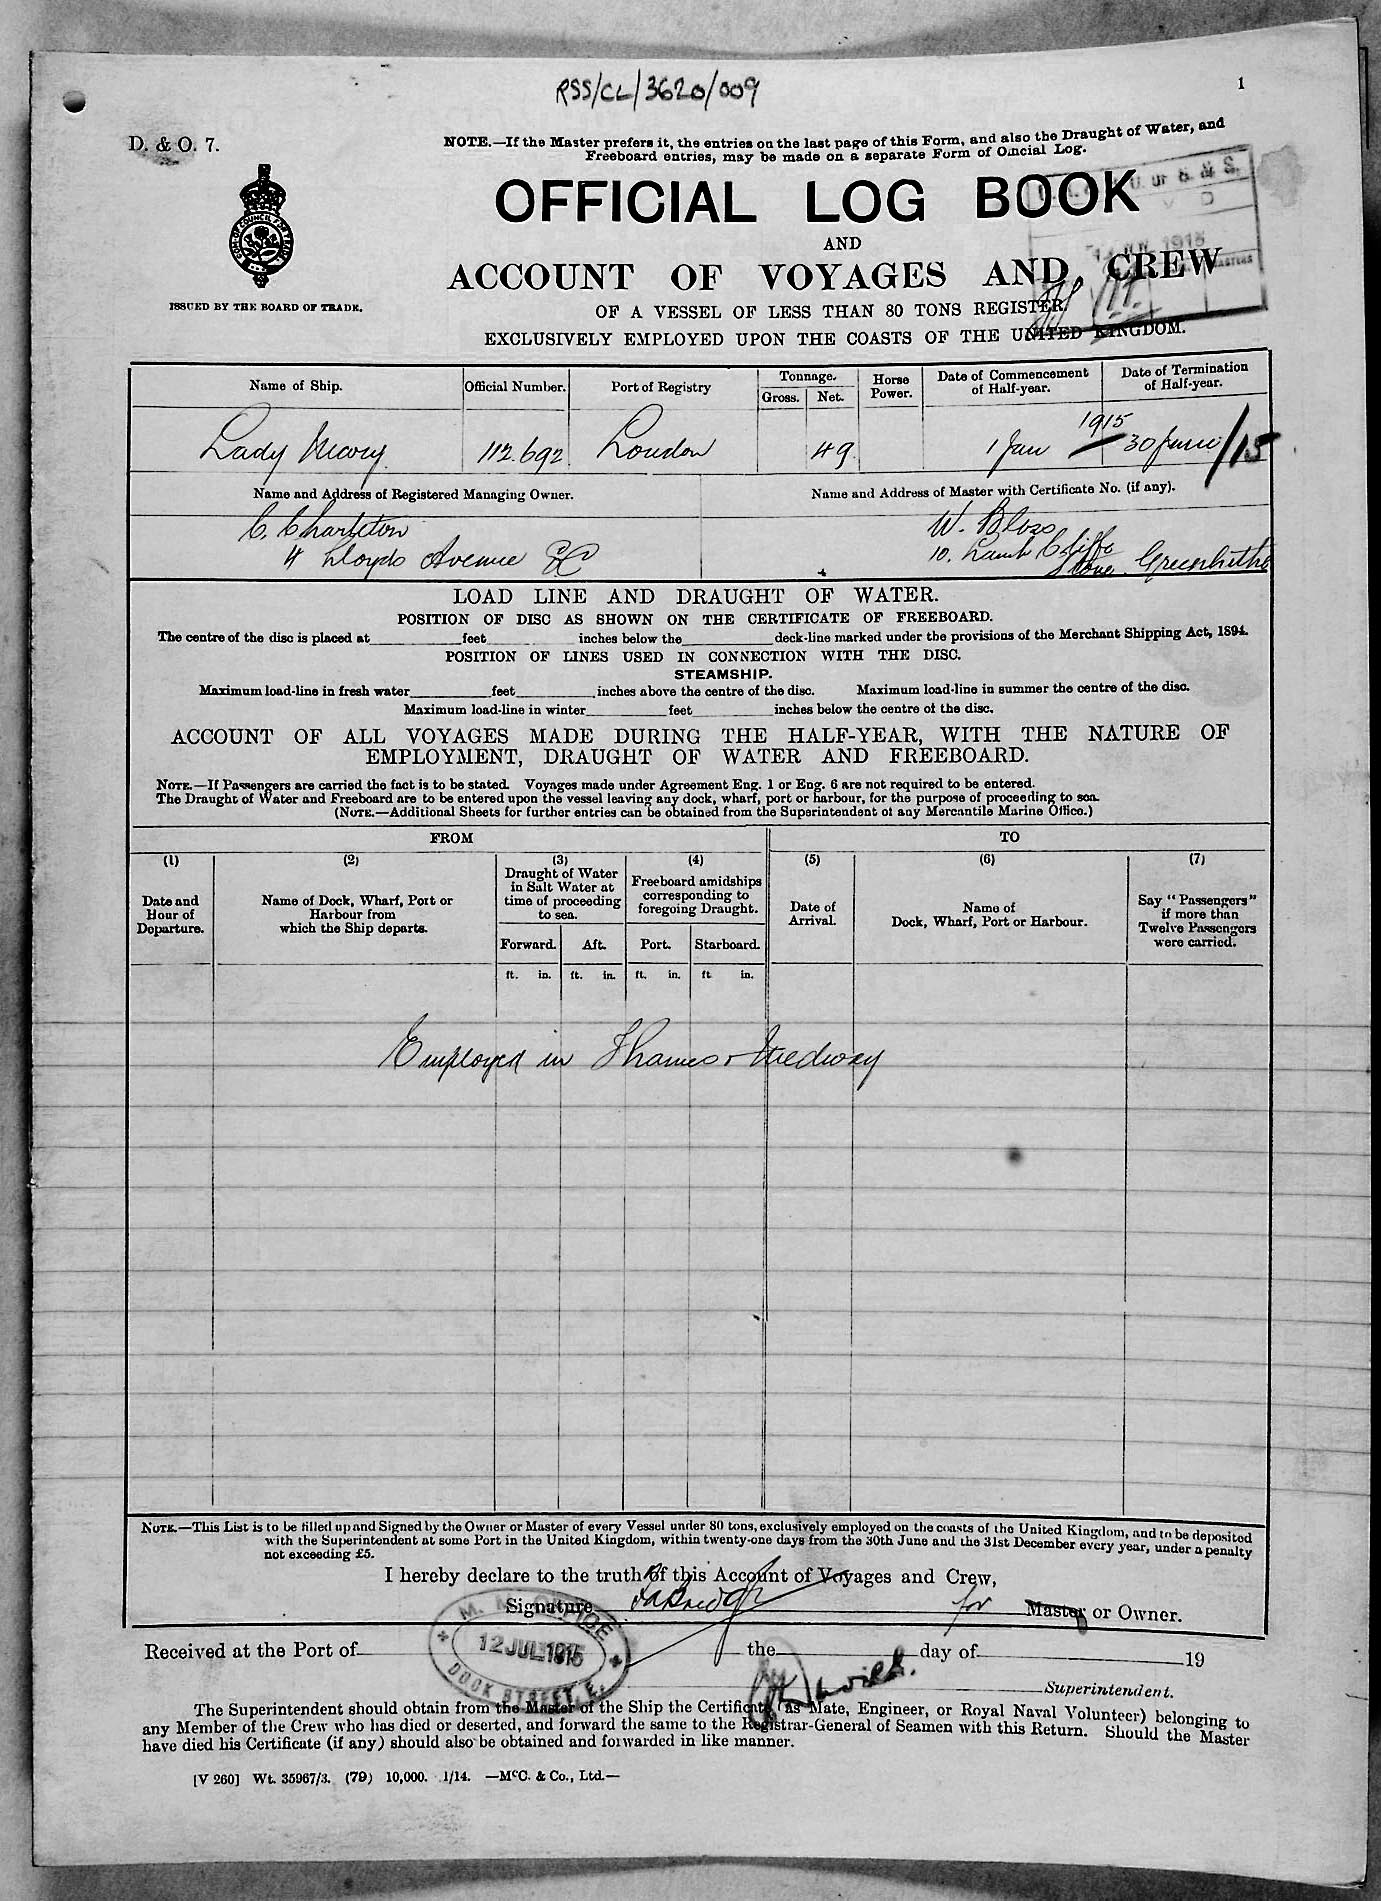 RSS/CL/3620/009
1
D. & O. 7.
NOTE.—If the Master prefers it, the entries on the last page of this Form, and also the Draught of Water, and
Freeboard entries, may be made on a separate Form of Official Log.
OFFICIAL LOG BOOK
AND
ACCOUNT OF VOYAGES AND CREW
OF A VESSEL OF LESS THAN 80 TONS REGISTER
EXCLUSIVELY EMPLOYED UPON THE COASTS OF THE UNITED KINGDOM.
ISSUED BY THE BOARD OF TRADE.
Name of Ship. Official Number. Port of Registry Tonnage. Gross. Net. Horse Power. Date of Commencement of Half-year. Date of Termination of Half-year.
Lady Mary 112.692 London 49 1 Jan 1915 30 June/15
Name and Address of Registered Managing Owner. Name and Address of Master with Certificate No. (if any).
C. Charleton W. Bloss
4 Lloyds Avenue EC 10. Lamb Cliffe
Stone Greenhithe
LOAD LINE AND DRAUGHT OF WATER.
POSITION OF DISC AS SHOWN ON THE CERTIFICATE OF FREEBOARD.
The centre of the disc is placed at feet inches below the deck-line marked under the provisions of the Merchant Shipping Act, 1894.
POSITION OF LINES USED IN CONNECTION WITH THE DISC.
STEAMSHIP.
Maximum load-line in fresh water feet inches above the centre of the disc. Maximum load-line in summer the centre of the disc.
Maximum load-line in winter feet inches below the centre of the disc.
ACCOUNT OF ALL VOYAGES MADE DURING THE HALF-YEAR, WITH THE NATURE OF
EMPLOYMENT, DRAUGHT OF WATER AND FREEBOARD.
NOTE.—If Passengers are carried the fact is to be stated. Voyages made under Agreement Eng. 1 or Eng. 6 are not required to be entered.
The Draught of Water and Freeboard are to be entered upon the vessel leaving any dock, wharf, port or harbour, for the purpose of proceeding to sea.
(NOTE.—Additional Sheets for further entries can be obtained from the Superintendent of any Mercantile Marine Office.)
FROM TO
(1) (2) (3) (4) (5) (6) (7)
Date and Hour of Departure.
Name of Dock, Wharf, Port or Harbour from which the Ship departs.
Draught of Water in Salt Water at time of proceeding to sea.
Freeboard amidships corresponding to foregoing Draught.
Date of Arrival.
Name of Dock, Wharf, Port or Harbour.
Say "Passengers" if more than Twelve Passengers were carried.
Forward. Aft. Port. Starboard.
ft. in. ft. in. ft. in. ft in.
Employed in Thames & Medway
NOTE.—This List is to be filled up and Signed by the Owner or Master of every Vessel under 80 tons, exclusively employed on the coasts of the United Kingdom, and to be deposited
with the Superintendent at some Port in the United Kingdom, within twenty-one days from the 30th June and the 31st December every year, under a penalty
not exceeding £5.
I hereby declare to the truth of this Account of Voyages and Crew,
Signature for Master or Owner.
12 JUL 1915
DOCK STREET, E.
Received at the Port of the day of 19
Superintendent.
The Superintendent should obtain from the Master of the Ship the Certificate (as Mate, Engineer, or Royal Naval Volunteer) belonging to
any Member of the Crew who has died or deserted, and forward the same to the Registrar-General of Seamen with this Return. Should the Master
have died his Certificate (if any) should also be obtained and forwarded in like manner.
[V 260] Wt. 35967/3. (79) 10,000. 1/14. —McC. & Co., Ltd.—